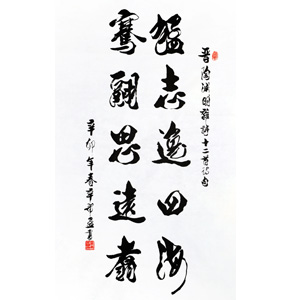 晋陶渊明雜詩十二首詩句
猛志逸四海
騫翮思遠翥
辛卯年春辛布益書